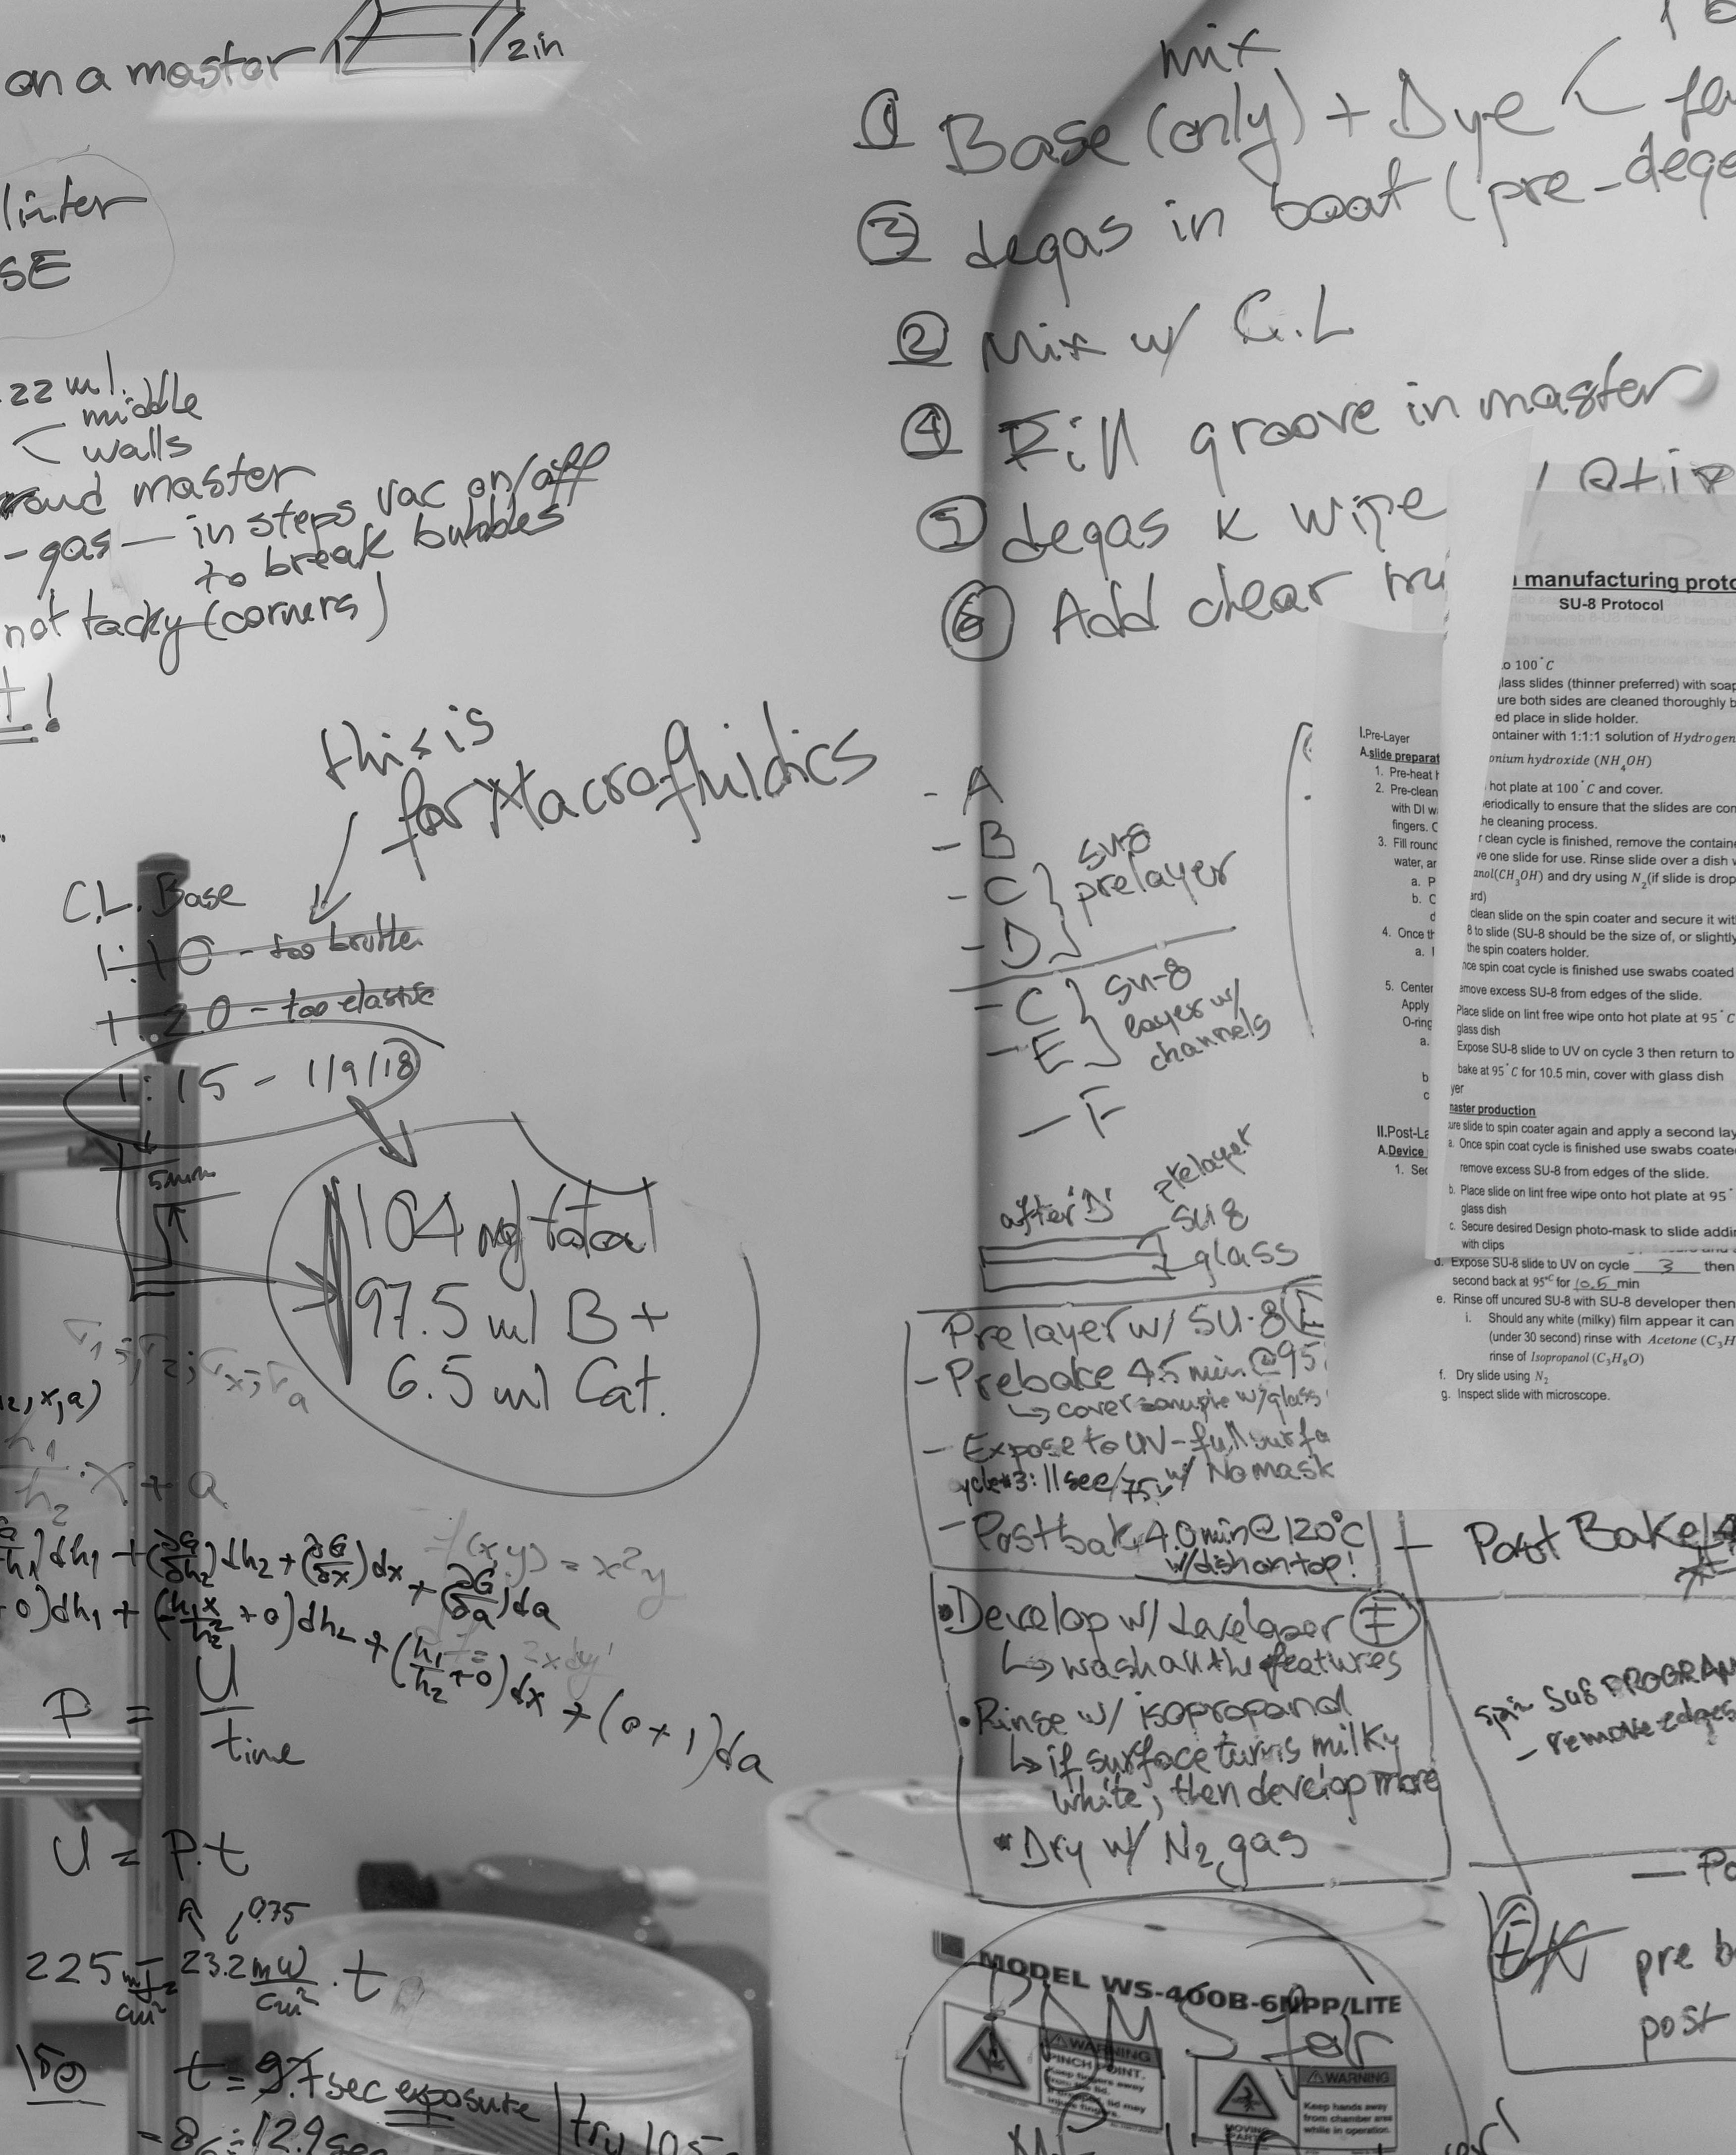 on a master
1/2in
linter
SE
22 ml.
middle
walls
master
-gas — in steps vac on/off
to break bubbles
not tacky (corners)
!
this is
for Macrofluidics
C.L. Base
1:10 - too brittle
1:20 - too elastic
1:15 - 1/9/18
5mm
104 total
97.5 ml B +
6.5 ml Cat.
, x, a)
h₂
· x + a
)dh₁ + (∂G/∂h₂)dh₂ + (∂G/∂x)dx + (∂G/∂a)da
f(x,y) = x²y
+0)dh₁ + (h₁x/h₂² +0)dh₂ + (h₁/h₂ +0)dx + (0+1)da
P = U/time
U = P.t
0.75
225 mJ/cm² = 23.2 mW/cm² · t
150
t = 9.7 sec exposure
12.9 sec
try 10.5
mix
① Base (only) + Dye
③ degas in boat (pre-dega
② Mix w/ C.L
④ Fill groove in master
⑤ degas K wipe
⑥ Add clear
- A
- B
- C
- D
SU8
prelayer
- C
- E
SU-8
layer w/
channels
- F
after 'D'
prelayer
SU8
glass
Prelayer w/ SU-8
- Prebake 45 min @ 95
↳ cover sample w/ glass
- Expose to UV - full surfa
cycle#3: 11sec/75% w/ No mask
- Postbak 40 min @ 120°C
w/ dish on top!
• Develop w/ Developer
↳ wash all the features
• Rinse w/ isopropanol
↳ if surface turns milky
white, then develop more
• Dry w/ N₂ gas
— Post Bake
spin SU8 PROGRAM
- remove edges
— Po
pre b
post
PDMS for
MODEL WS-400B-6NPP/LITE
WARNING
PINCH POINT.
Keep fingers away
from the lid.
WARNING
MOVING
PART
Keep hands away
from chamber area
while in operation.
I.Pre-Layer
A.slide preparat
1. Pre-heat h
2. Pre-clean
with DI w
fingers. C
3. Fill round
water, ar
a. P
b. C
d
4. Once th
a.
5. Center
Apply
O-ring
a.
b
c
II.Post-La
A.Device
1. Sec
manufacturing proto
SU-8 Protocol
o 100°C
lass slides (thinner preferred) with soap
ure both sides are cleaned thoroughly b
ed place in slide holder.
ontainer with 1:1:1 solution of Hydrogen
onium hydroxide (NH₄OH)
hot plate at 100°C and cover.
eriodically to ensure that the slides are con
he cleaning process.
r clean cycle is finished, remove the containe
ve one slide for use. Rinse slide over a dish w
anol(CH₃OH) and dry using N₂(if slide is drop
ard)
clean slide on the spin coater and secure it wit
8 to slide (SU-8 should be the size of, or slightly
the spin coaters holder.
nce spin coat cycle is finished use swabs coated
emove excess SU-8 from edges of the slide.
Place slide on lint free wipe onto hot plate at 95°C
glass dish
Expose SU-8 slide to UV on cycle 3 then return to
bake at 95°C for 10.5 min, cover with glass dish
yer
master production
ure slide to spin coater again and apply a second lay
a. Once spin coat cycle is finished use swabs coate
remove excess SU-8 from edges of the slide.
b. Place slide on lint free wipe onto hot plate at 95°
glass dish
c. Secure desired Design photo-mask to slide addin
with clips
d. Expose SU-8 slide to UV on cycle 3 then
second back at 95°C for 10.5 min
e. Rinse off uncured SU-8 with SU-8 developer then
i. Should any white (milky) film appear it can
(under 30 second) rinse with Acetone (C₃H
rinse of Isopropanol (C₃H₈O)
f. Dry slide using N₂
g. Inspect slide with microscope.